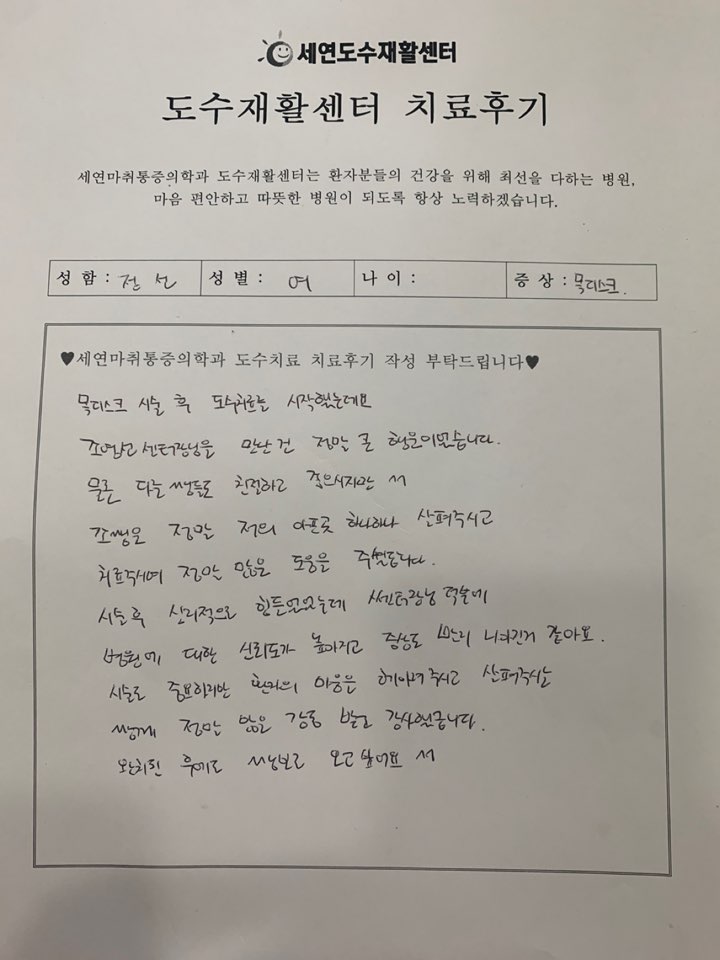 세연도수재활센터
도수재활센터 치료후기
세연마취통증의학과 도수재활센터는 환자분들의 건강을 위해 최선을 다하는 병원,
마음 편안하고 따뜻한 병원이 되도록 항상 노력하겠습니다.
성 함 : 전 선 성 별 : 여 나 이 : 증 상 : 목디스크.
♥세연마취통증의학과 도수치료 치료후기 작성 부탁드립니다♥
목디스크 시술 후 도수치료는 시작했는데요
센터장님을 만난 건 정말 큰 행운이였습니다.
물론 다른 쌤들도 친절하고 좋으시지만
조쌤은 정말 저의 아픈곳 하나하나 살펴주시고
치료해주시며 정말 많은 도움을 주셨습니다.
시술 후 심리적으로 힘든 센터장님 덕분에
병원에 대한 신뢰도가 높아지고 증상도 빨리 나아진거 같아요.
시술도 중요하지만 환자의 마음을 헤아려주시고 살펴주시는
쌤께 정말 많은 감동 받고 감사했습니다.
완치된 후에도 쌤보러 오고싶어요